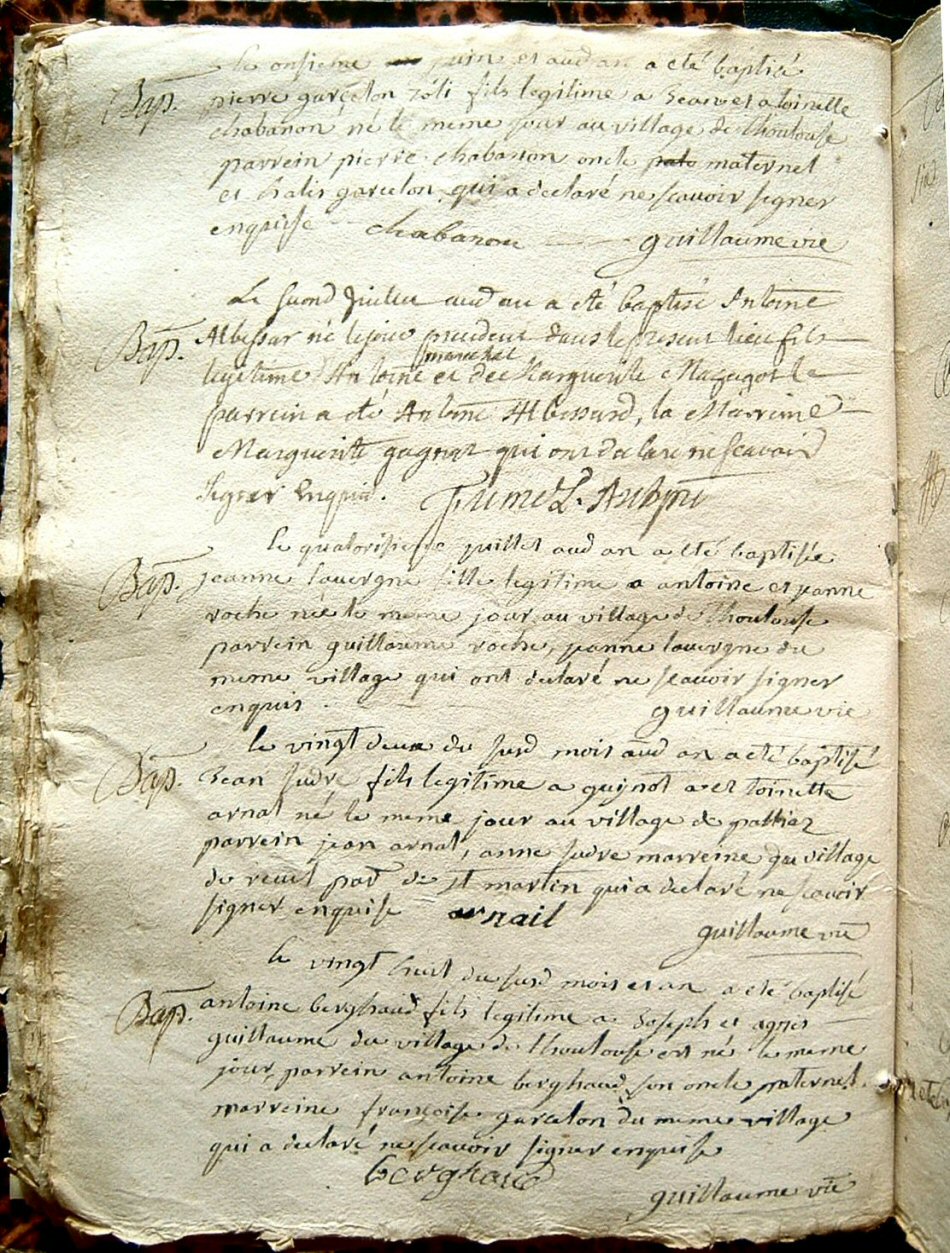 Le onsieme juin et aud an a eté baptisé
Bap. pierre garcelon fils legitime a Jean et a toinette
chabanon né le meme jour au village de thoulouse
parrein pierre chabanon oncle pato maternel
et garcelon qui a declaré ne scavoir signer
enquise chabanon guillaume vie
Le second juillet aud an a eté baptisé Antoine
Bap. Albessar né le jour precedent dans le present lieu fils
marechal
legitime Antoine et de Marguerite
parrein a eté Antoine Albessard, la Marreine
Marguerite qui ont declaré ne scavoir
signer Enquis.
Le quatorisieme juillet aud an a eté baptisée
Bap. jeanne lauvergne fille legitime a antoine et jeanne
roche née le meme jour au village de thoulouse
parrein guillaume roche, jeanne lauvergne du
meme village qui ont declaré ne scavoir signer
enquis. guillaume vie
le vingt deux du susd mois aud an a eté baptisé
Bap. Jean sudre fils legitime a guinot et toinette
arnal né le meme jour au village de
parrein jean arnal, anne sudre marreine du village
de par de st martin qui a declaré ne scavoir
signer enquise arnail
guillaume vie
le vingt huit du susd mois et an a eté baptisé
Bap. antoine berghaud fils legitime a Joseph et agnes
guillaume du village de thoulouse et né le meme
jour, parrein antoine berghaud son oncle paternel.
marreine françoise garcelon du meme village
qui a declaré ne scavoir signer enquise
berghaud
guillaume vie